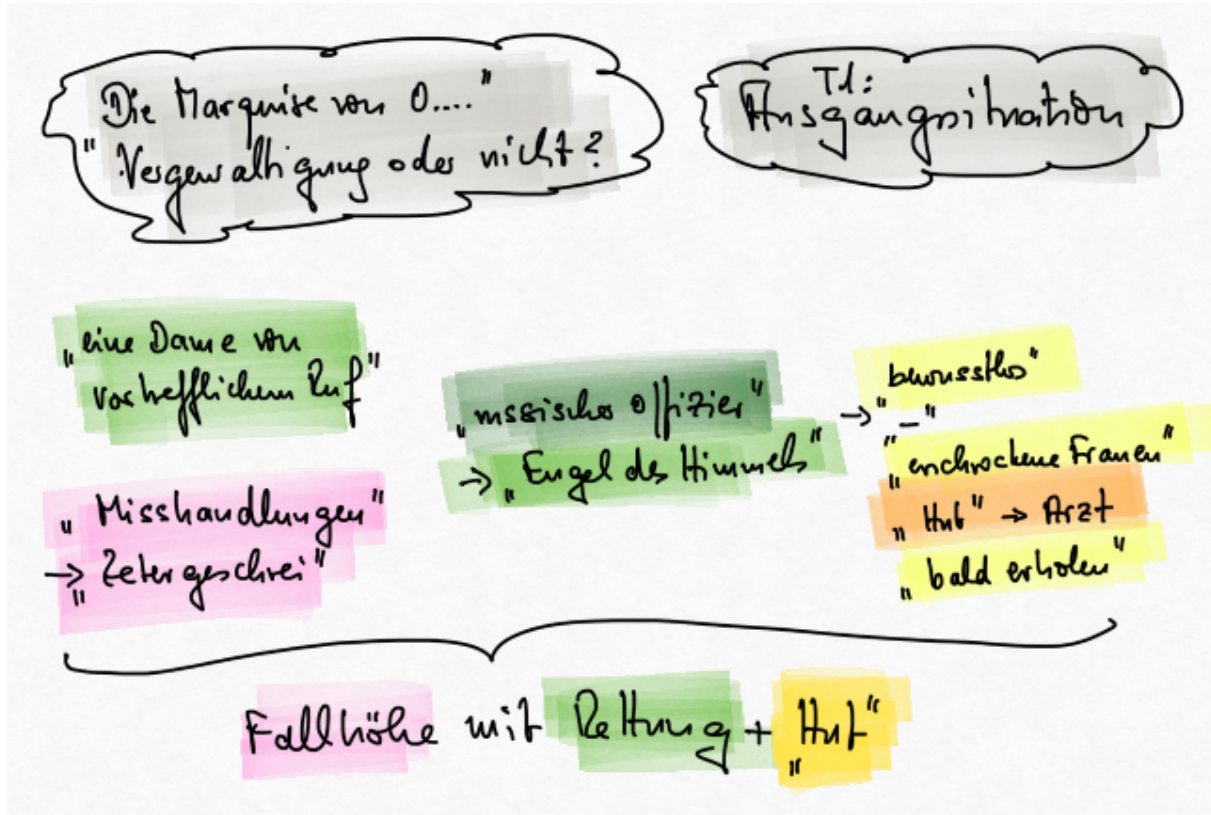 "Die Marquise von O...."
"Vergewaltigung oder nicht?
T1:
Ausgangssituation
„eine Dame von
vortrefflichem Ruf"
„Misshandlungen"
→ „Zetergeschrei"
„russischer Offizier"
→ „Engel des Himmels"
→ „bewusstlos"
"–"
„erschrockene Frauen"
„Hut" → Arzt
„bald erholen"
Fallhöhe mit Rettung + „Hut"